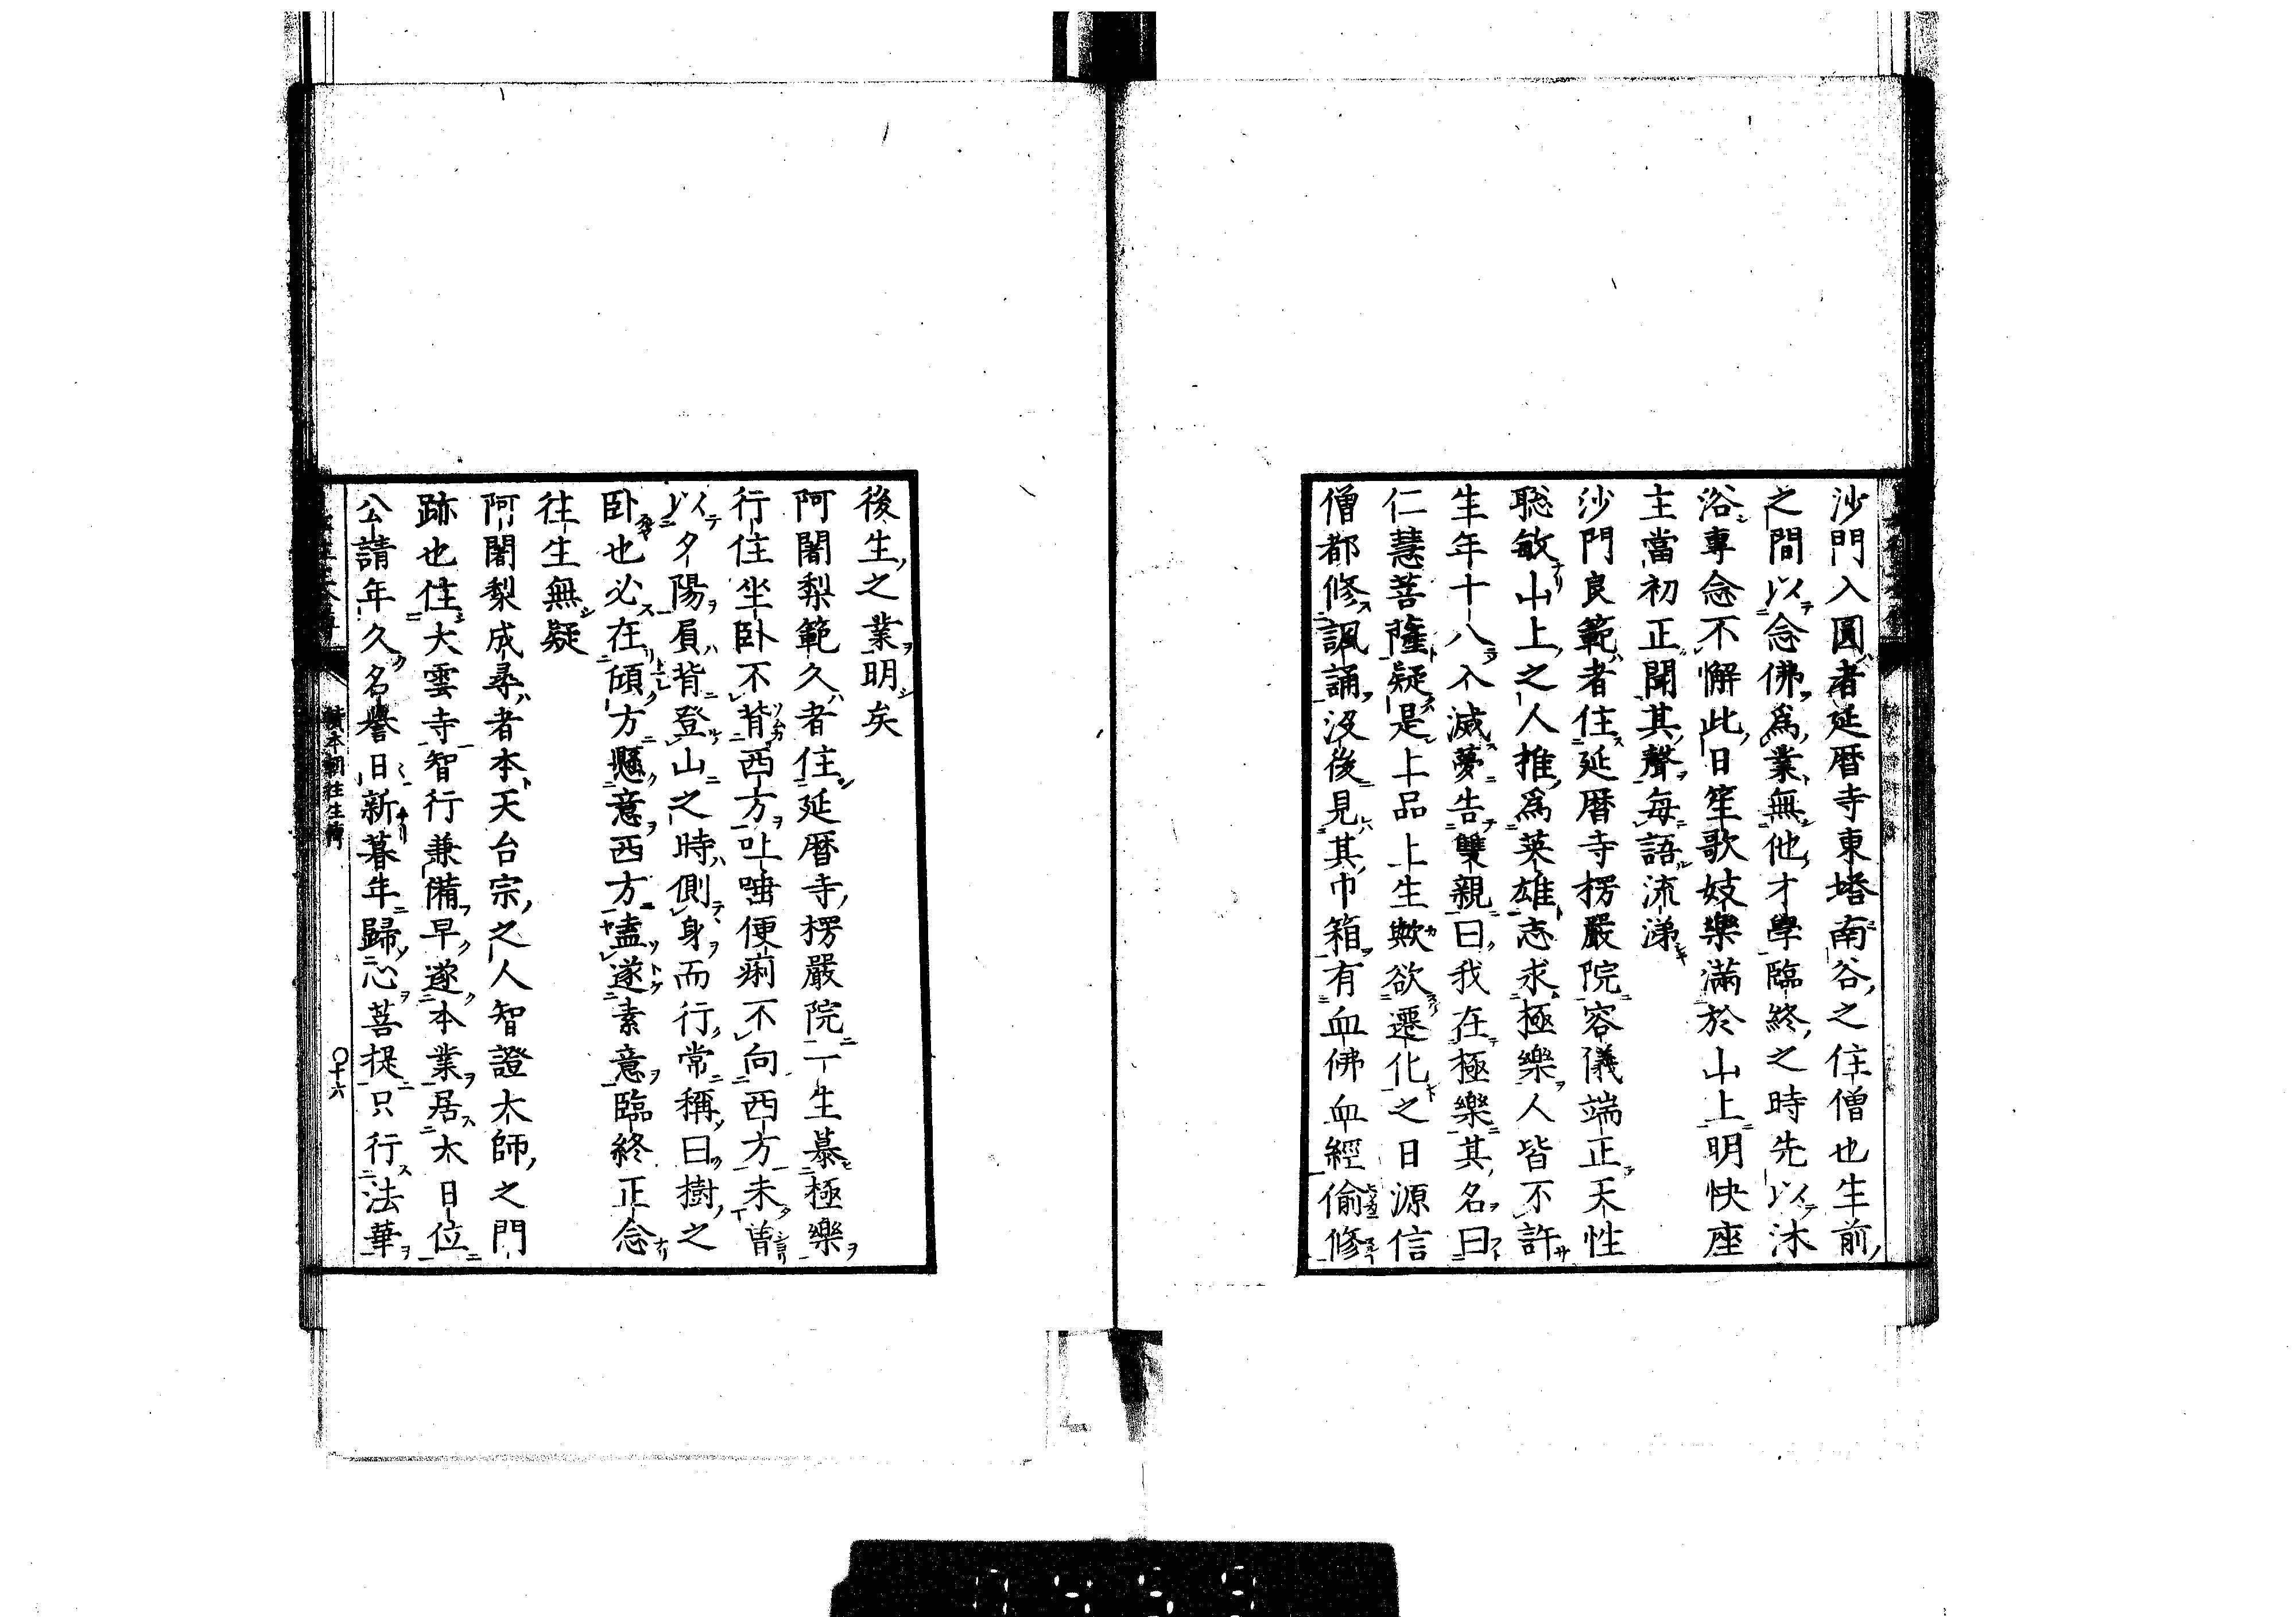 沙門入圓者延暦寺東塔南谷之住僧也生前
之間以念佛爲業無他才學臨終之時先以沐
浴專念不懈此日笙歌妓樂滿於山上明快座
主當初正聞其聲毎語流涕
沙門良範者住延暦寺楞嚴院容儀端正天性
聡敏山上之人推爲英雄志求極樂人皆不許
生年十八入滅夢告雙親曰我在極樂其名曰
仁慧菩隆疑是上品上生歟欲遷化之日源信
僧都修諷誦没後見其巾箱有血佛血經偷修
後生之業明矣
阿闍梨範久者住延暦寺楞嚴院一生慕極樂
行住坐臥不背西方吐唾便痢不向西方未曽
以夕陽屓背登山之時側身而行常稱曰樹之
卧也必在傾方懸意西方盍遂素意臨終正念
往生無疑
阿闍梨成尋者本天台宗之人智證大師之門
跡也住大雲寺智行兼備早遂本業居大日位
公請年久名譽日新暮年歸心菩提只行法華
續本朝往生傳
〇十六